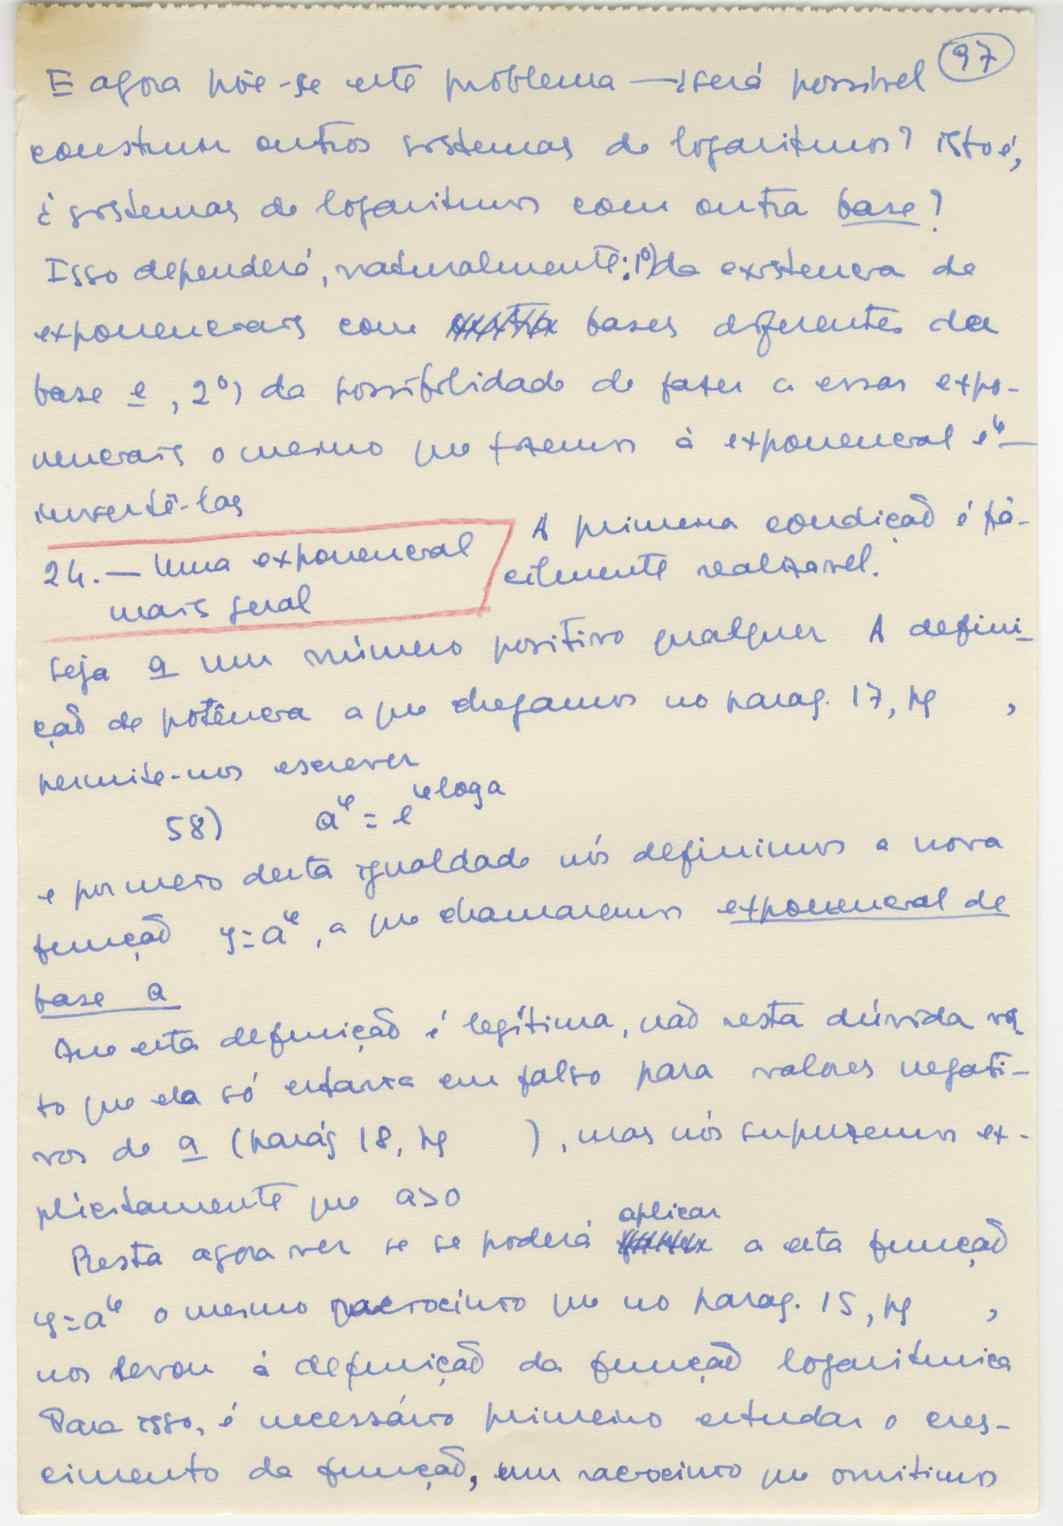 97
E agora põe-se este problema — ¿será possível
construir outros sistemas de logaritmos? isto é,
¿ sistemas de logaritmos com outra base?
Isso dependerá, naturalmente: 1º) da existencia de
exponenciais com bases diferentes da
base e, 2º) da possibilidade de fazer a essas expo-
nenciais o mesmo que fizemos à exponencial eˣ —
invertê-las
24. — Uma exponencial
mais geral
A primeira condição é fà-
cilmente realizavel.
Seja a um número positivo qualquer A defini-
ção de potência a que chegamos no parag. 17, pg ,
permite-nos escrever
58) aˣ = eˣ log a
e por meio desta igualdade nós definimos a nova
função y = aˣ, a que chamaremos exponencial de
base a
Que esta definição é legítima, não resta dúvida vis
to que ela só estaria em falso para valores negati-
vos de a (parág 18, pg ), mas nós supuzemos ex-
plicitamente que a>0
Resta agora ver se se poderá aplicar a esta função
y = aˣ o mesmo raciocinio que no parag. 15, pg ,
nos levou à definição da função logaritmica
Para isso, é necessário primeiro estudar o cres-
cimento da função, num raciocinio que omitimos